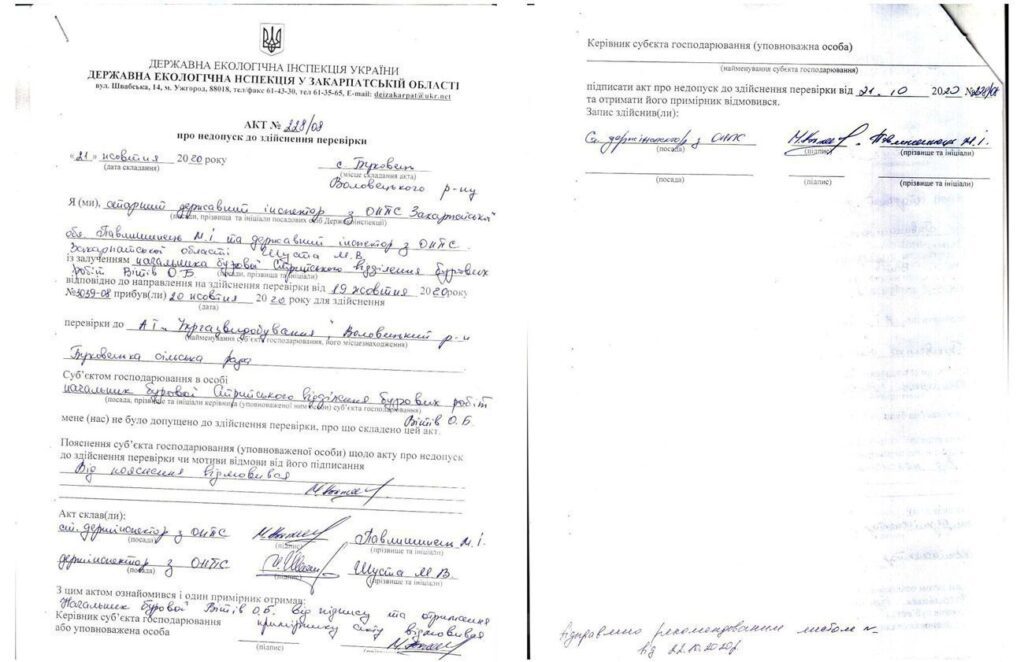 ДЕРЖАВНА ЕКОЛОГІЧНА ІНСПЕКЦІЯ УКРАЇНИ
ДЕРЖАВНА ЕКОЛОГІЧНА НСПЕКЦІЯ У ЗАКАРПАТСЬКІЙ ОБЛАСТІ
вул. Швабська, 14, м. Ужгород, 88018, тел/факс 61-43-30, тел 61-35-65, E-mail: deizakarpat@ukr.net
АКТ № 228/08
про недопуск до здійснення перевірки
«21» жовтня 2020 року
(дата складання)
с. Буковець
(місце складання акта)
Воловецького р-ну
Я (ми), старший державний інспектор з ОНПС Закарпатської
(посади, прізвища та ініціали посадових осіб Держекоінспекції)
обл. Павлишинець М.І та державний інспектор з ОНПС
Закарпатської області Шуста М.В.
із залученням начальника бурової Стрийського відділення бурових
робіт Вітів О.Б
(посади, прізвища та ініціали)
відповідно до направлення на здійснення перевірки від 19 жовтня 2020 року
№3039-08 прибув(ли) 20 жовтня 2020 року для здійснення
(дата)
перевірки до АТ „Укргазвидобування", Воловецький р-н
(найменування суб'єкта господарювання, його місцезнаходження)
Буковецька сільська рада
Суб'єктом господарювання в особі
начальник бурової Стрийського відділення бурових робіт
(посада, прізвище та ініціали керівника (уповноваженої ним особи) суб'єкта господарювання)
Вітів О.Б.
мене (нас) не було допущено до здійснення перевірки, про що складено цей акт.
Пояснення суб'єкта господарювання (уповноваженої особи) щодо акту про недопуск
до здійснення перевірки чи мотиви відмови від його підписання
Від пояснення відмовився
Акт склав(ли):
ст. держінспектор з ОНПС Павлишинець М.І.
(посада) (підпис) (прізвище та ініціали)
держінспектор з ОНПС Шуста М.В.
(посада) (підпис) (прізвище та ініціали)
З цим актом ознайомився і один примірник отримав:
Начальник бурової Вітів О.Б. від підпису та отримання
Керівник суб'єкта господарювання примірнику акту відмовився
або уповноважена особа
(підпис)
Керівник субєкта господарювання (уповноважна особа)
(найменування субєкта господарювання)
підписати акт про недопуск до здійснення перевірки від 21.10 2020 №228/08
та отримати його примірник відмовився.
Запис здійснив(ли):
Ст. держінспектор з ОНПС Павлишинець М.І.
(посада) (підпис) (прізвище та ініціали)
(посада) (підпис) (прізвище та ініціали)
Відправлено рекомендованим листом
від 22.10.2020р.